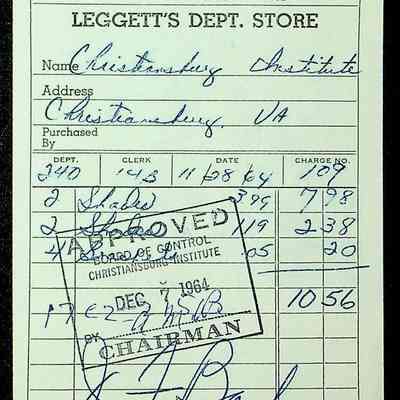 LEGGETT'S DEPT. STORE
Name Christiansburg Institute
Address
Christiansburg, VA
Purchased
By
DEPT. CLERK DATE CHARGE NO.
240 143 11/28/64 109
2 Shades 3 99 7 98
2 Shades 1 19 2 38
4 05 20
APPROVED
BOARD OF CONTROL
CHRISTIANSBURG INSTITUTE
DEC 7 1964
10 56
BY
CHAIRMAN